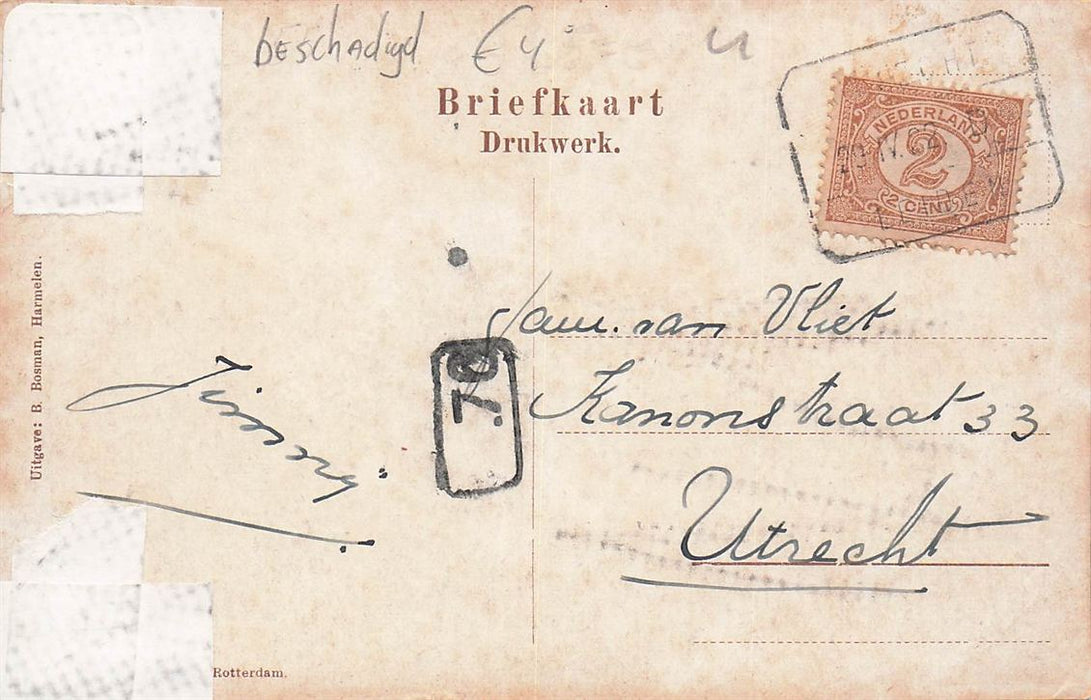 beschadigd €4
Briefkaart
Drukwerk.
NEDERLAND
2
2 CENT
Uitgave: B. Bosman, Harmelen.
van Vliet
Kanonstraat 33
Utrecht
.70
Rotterdam.